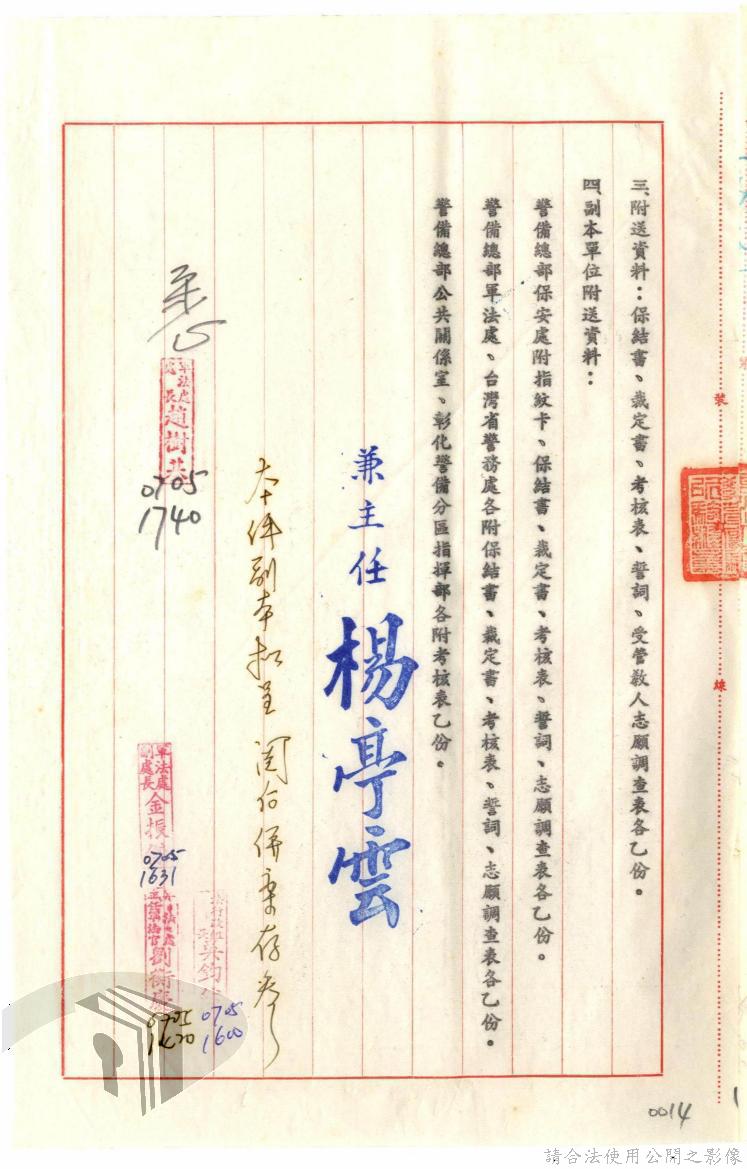 三、附送資料：保結書、裁定書、考核表、誓詞、受管教人志願調查表各乙份。
四、副本單位附送資料：
警備總部保安處附指紋卡、保結書、裁定書、考核表、誓詞、志願調查表各乙份。
警備總部軍法處、台灣省警務處各附保結書、裁定書、考核表、誓詞、志願調查表各乙份。
警備總部公共關係室、彰化警備分區指揮部各附考核表乙份。
兼主任 楊亭雲
本件副本擬呈 閱后併案存參
軍法處
處長 趙樹
0705
1740
軍法處
副處長 金振
0705
1631
劉衡
0705
吳鈞
0705
1600
裝
訂
線
0014
請合法使用公開之影像